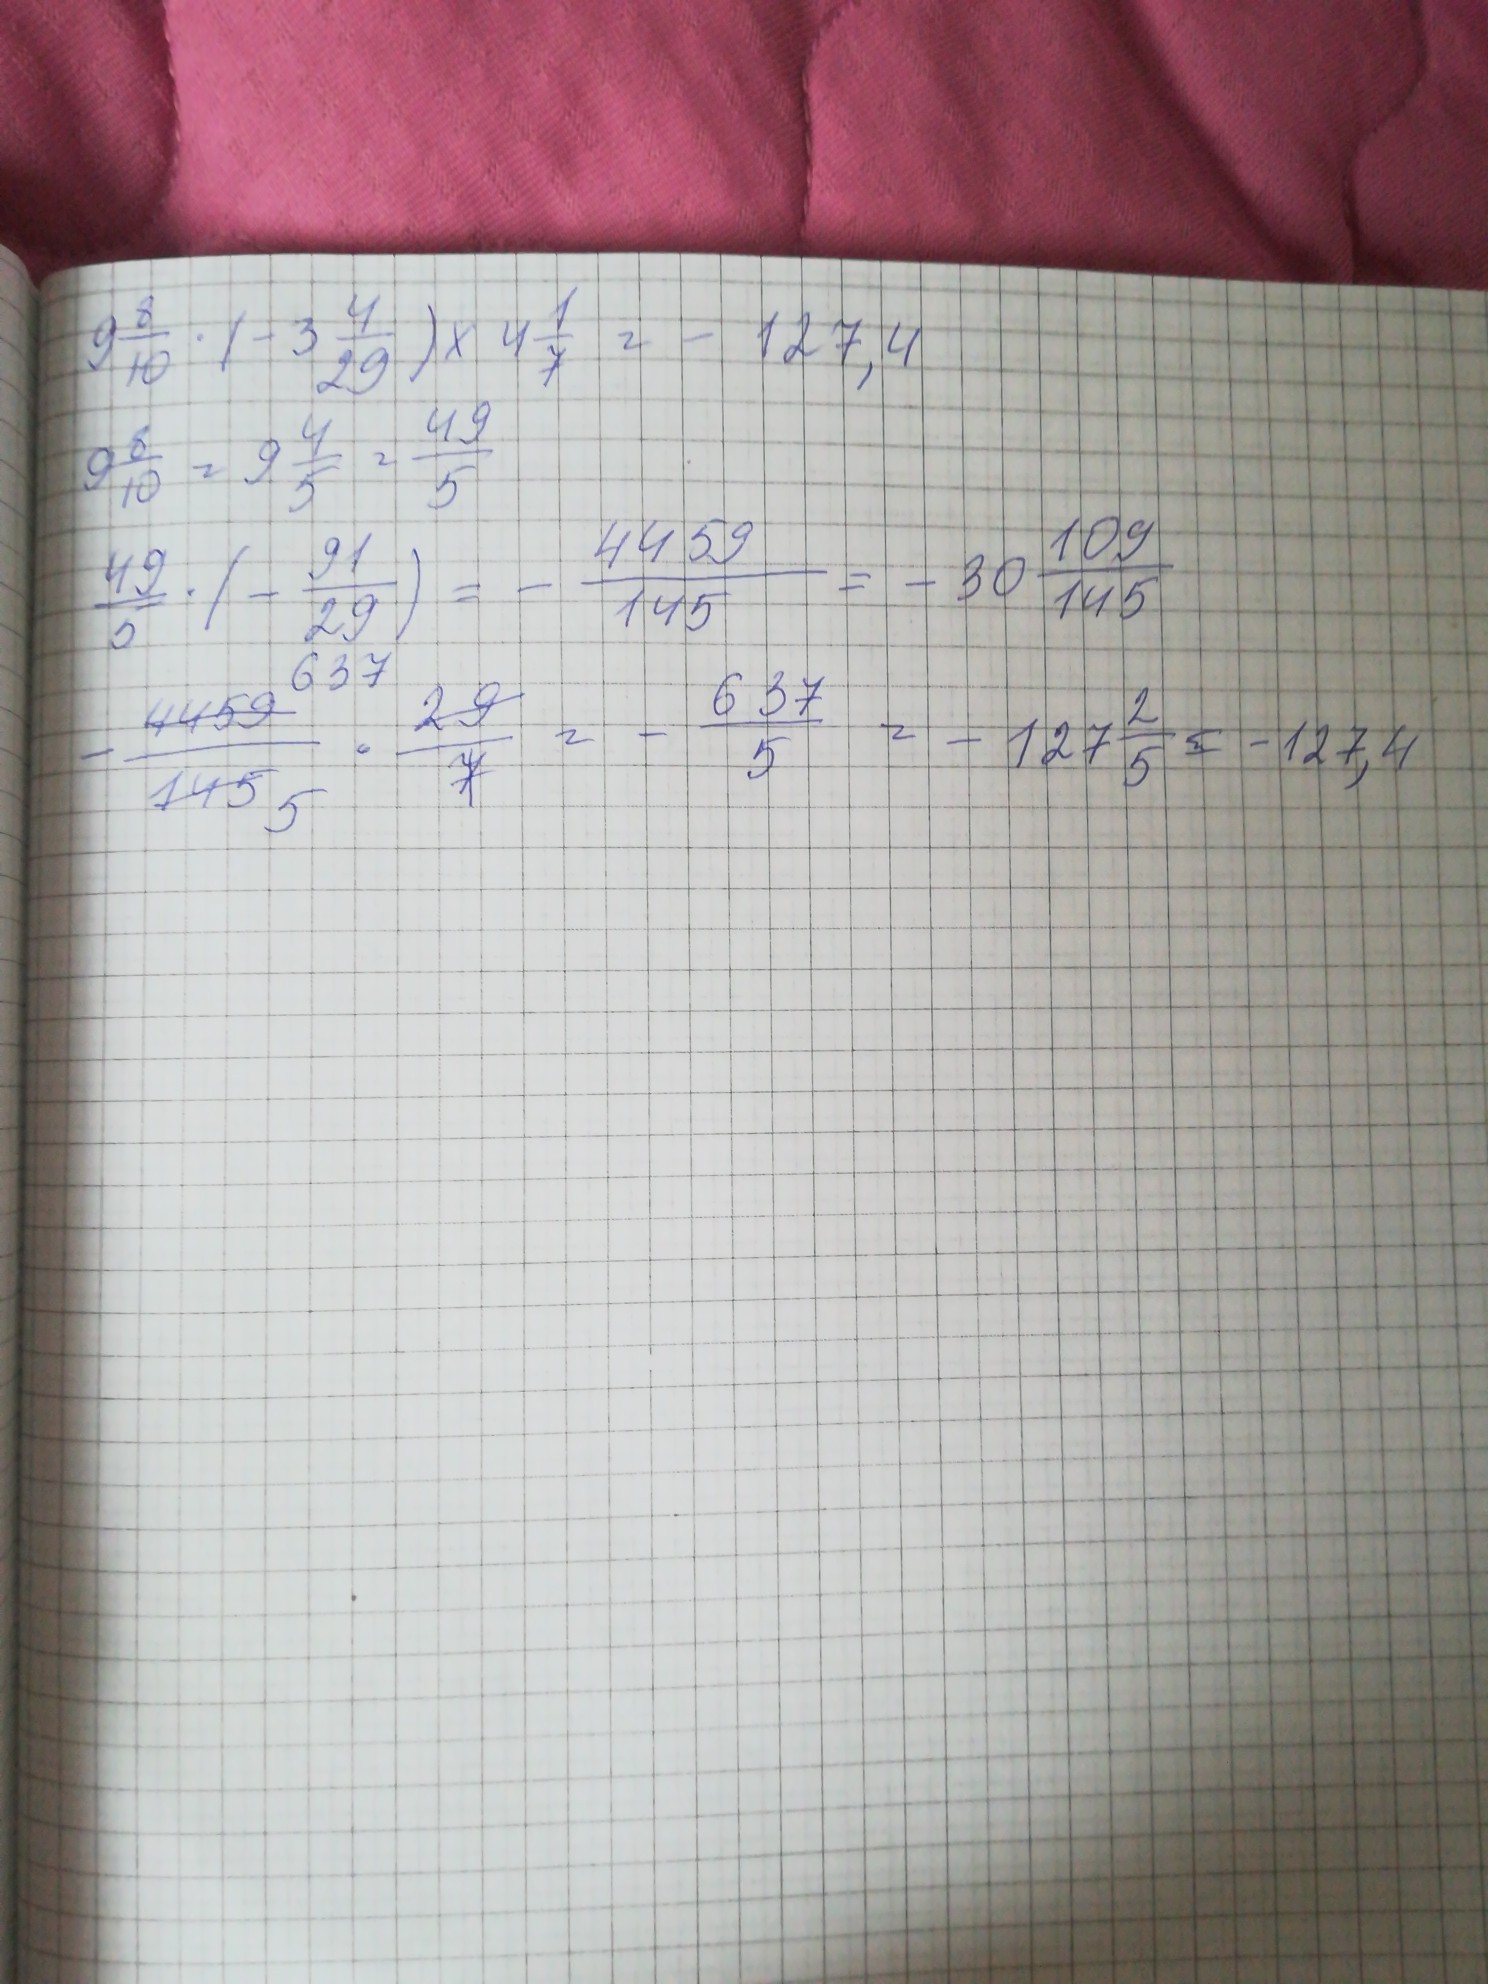 9 8/10 · (-3 4/29) × 4 1/7 = - 127,4
9 8/10 = 9 4/5 = 49/5
49/5 · (- 91/29) = - 4459/145 = - 30 109/145
637
- 4459/145 5 · 29/7 = - 637/5 = - 127 2/5 = -127,4